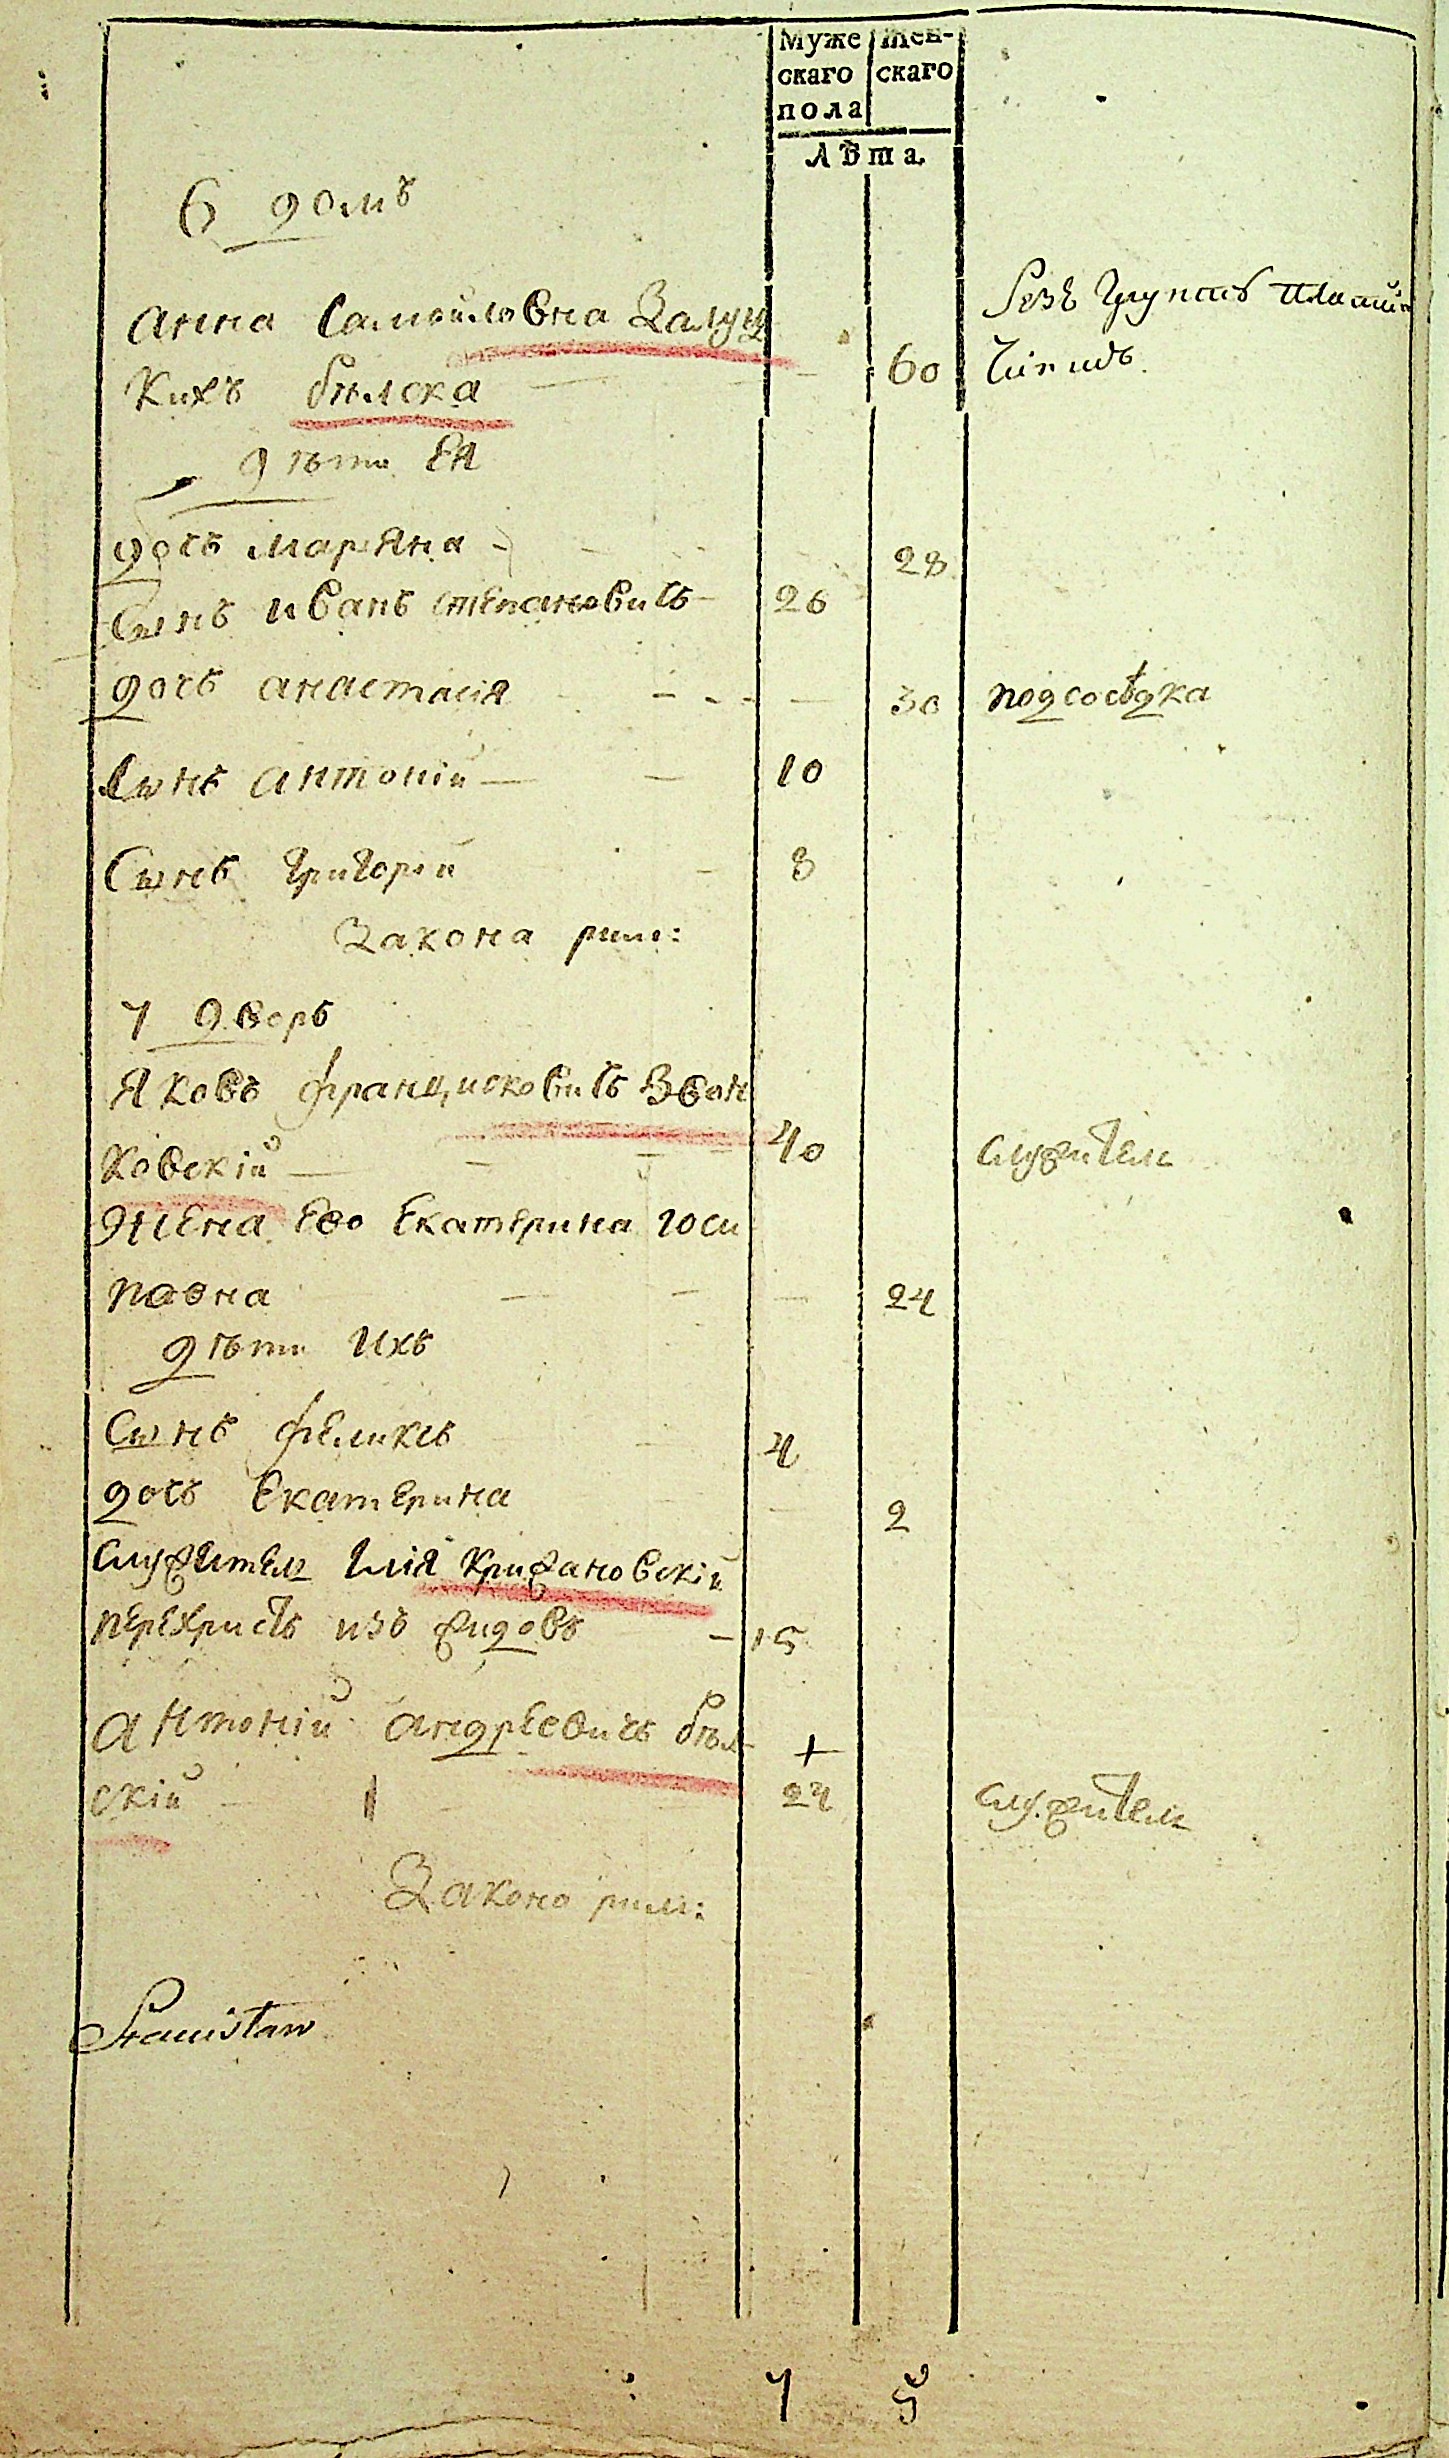 Муже Жен-
скаго скаго
пола
Лѣта.
6 домъ
Анна Самойловна Залуц
кихъ бѣлска 60
дѣти Ея
дочь Марияна - 28
Сынъ иванъ степановичь 26
дочь анастасія 30 подсосѣдка
Сынъ антоній 10
Сынъ Григорій 8
Закона рим:
7 дворъ
Яковъ францисковичь Звон
ковскій 40 служитель
Жена Ево Екатерина юси
повна 24
дѣти ихъ
Сынъ феликсъ 4
дочь Екатерина 2
служитель илія крижановскій
перехристъ изъ жидовъ 15
Антоній андреевичь бѣл
скій 24 служитель
Закона рим:
Stanisław
7 5